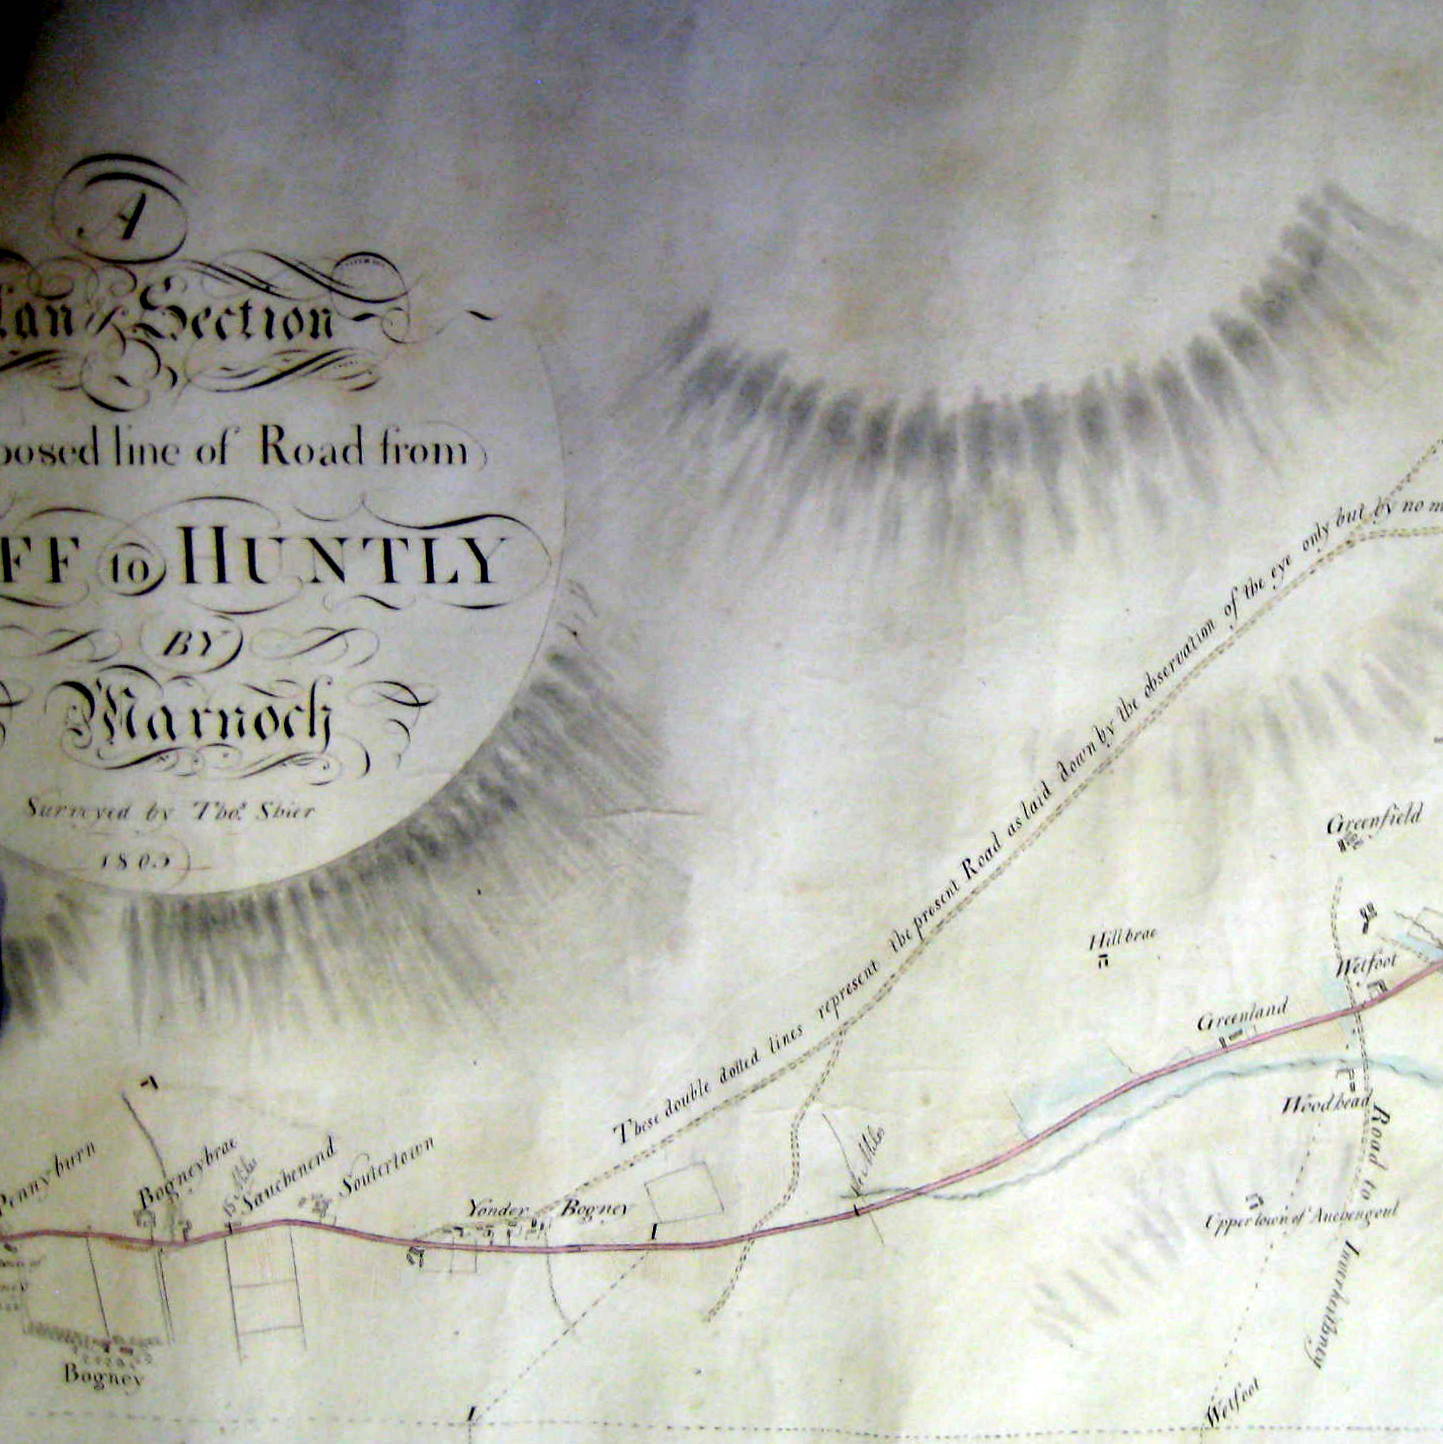 A
lan & Section
posed line of Road from
FF to HUNTLY
BY
Marnoch
Surveyed by Thos. Shier
1805
These double dotted lines represent the present Road as laid down by the observation of the eye only but by no m
Greenfield
Hillbrae
Wetfoot
Greenland
Woodhead
Road to Inverkeithney
Upper town of Auchengoul
Wetfoot
Miles
Pennyburn
Bogneybrae
13 Miles
Sauchenend
Soutertown
Yonder Bogney
I
Bogney
I